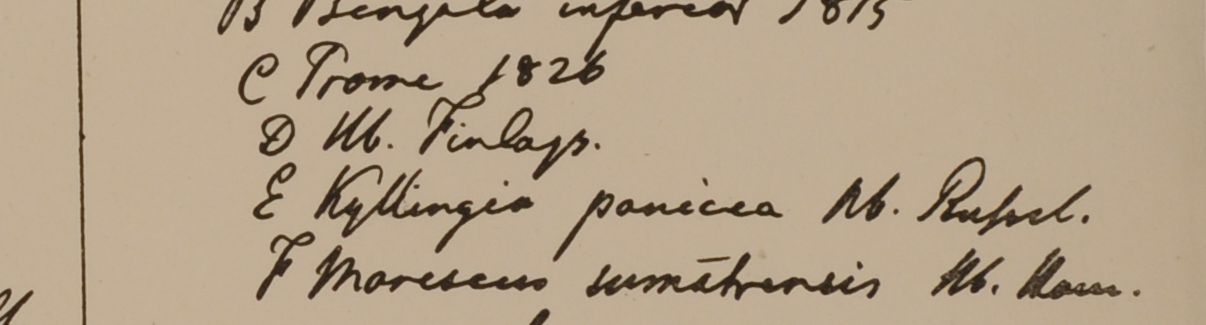 B Bengala inferior 1815
C Prome 1826
D Hb. Finlays.
E Kyllingia panicea Hb. Russel.
F Mariscus sumatrensis Hb. Ham.